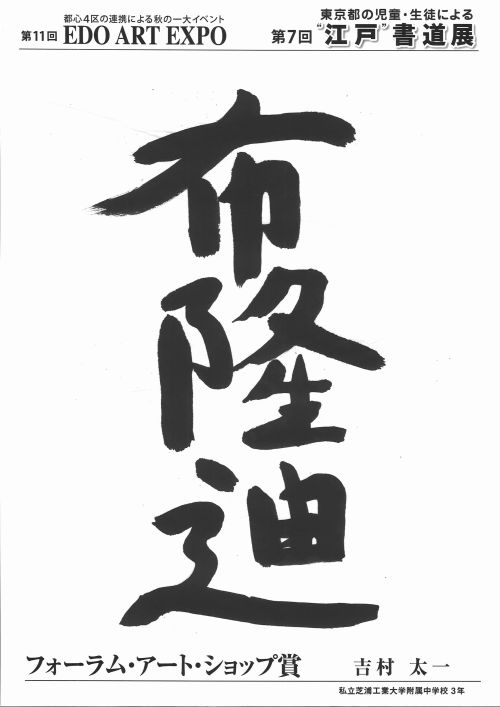 都心4区の連携による秋の一大イベント
第11回 EDO ART EXPO
東京都の児童・生徒による
第7回 “江戸”書道展
布隆迪
フォーラム・アート・ショップ賞 吉村 太一
私立芝浦工業大学附属中学校 3年